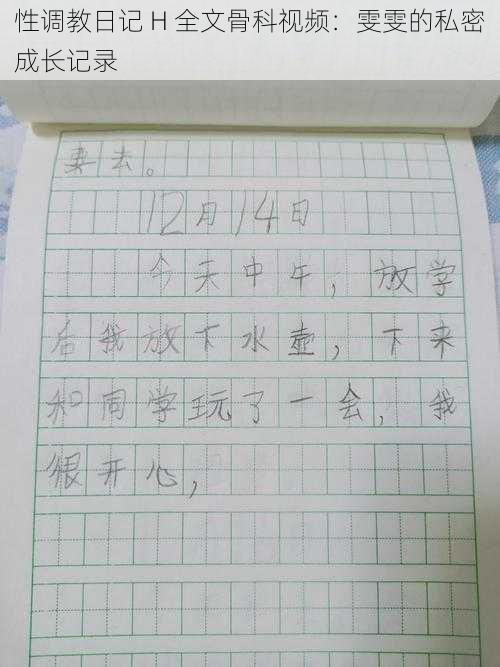 性调教日记 H 全文骨科视频：雯雯的私密
成长记录
去。
12月14日
今天中午，放学
后我放下水壶，下来
和同学玩了一会，我
很开心，